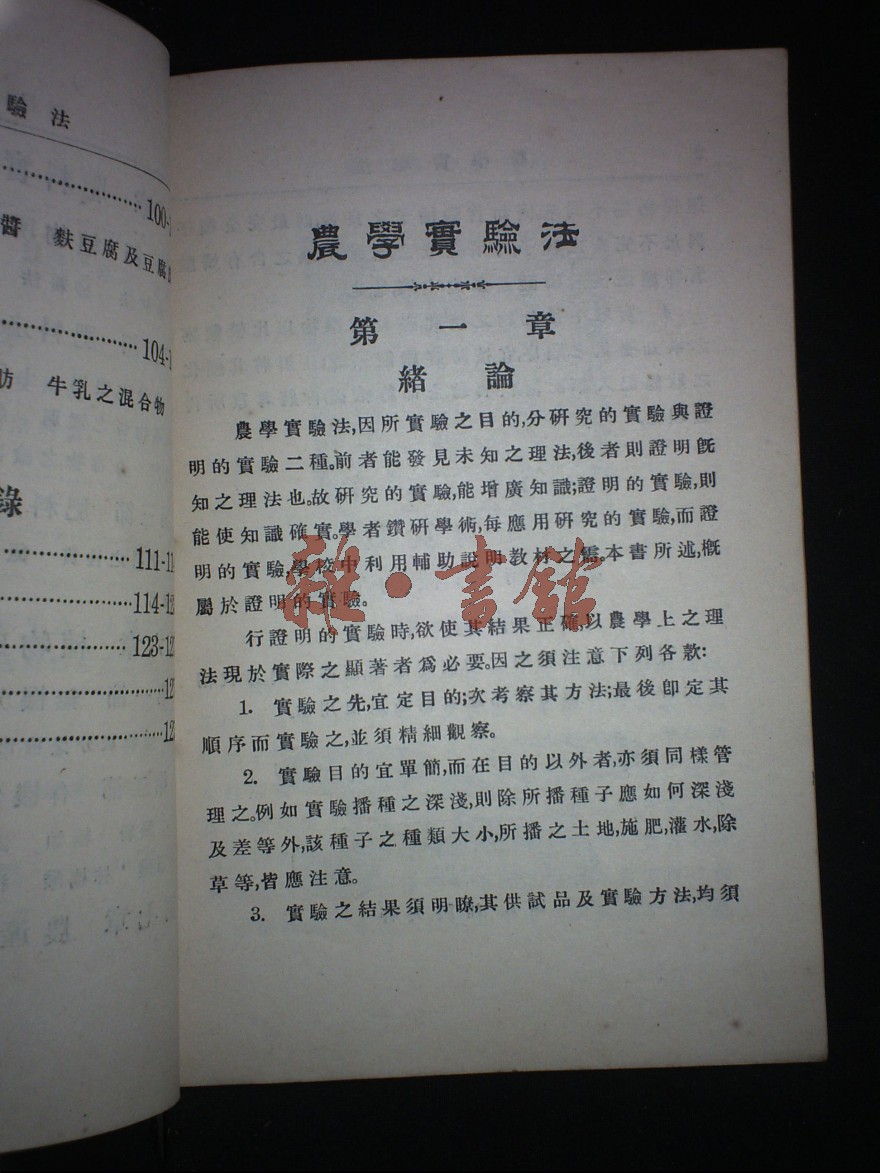 驗法
100-
醬 麩豆腐及豆腐
104-1
肪 牛乳之混合物
錄
111-11
114-12
123-12
12
12
農學實驗法
第一章
緒論
農學實驗法,因所實驗之目的,分硏究的實驗與證
明的實驗二種。前者能發見未知之理法,後者則證明旣
知之理法也。故硏究的實驗,能增廣知識;證明的實驗,則
能使知識確實。學者鑽硏學術,每應用硏究的實驗,而證
明的實驗,學校中利用輔助說明教材之需。本書所述,槪
屬於證明的實驗。
行證明的實驗時,欲使其結果正確,以農學上之理
法現於實際之顯著者爲必要。因之須注意下列各款:
1. 實驗之先,宜定目的;次考察其方法;最後卽定其
順序而實驗之,並須精細觀察。
2. 實驗目的宜單簡,而在目的以外者,亦須同樣管
理之。例如實驗播種之深淺,則除所播種子應如何深淺
及差等外,該種子之種類大小,所播之土地,施肥,灌水,除
草等,皆應注意。
3. 實驗之結果須明瞭,其供試品及實驗方法,均須
雜·書館